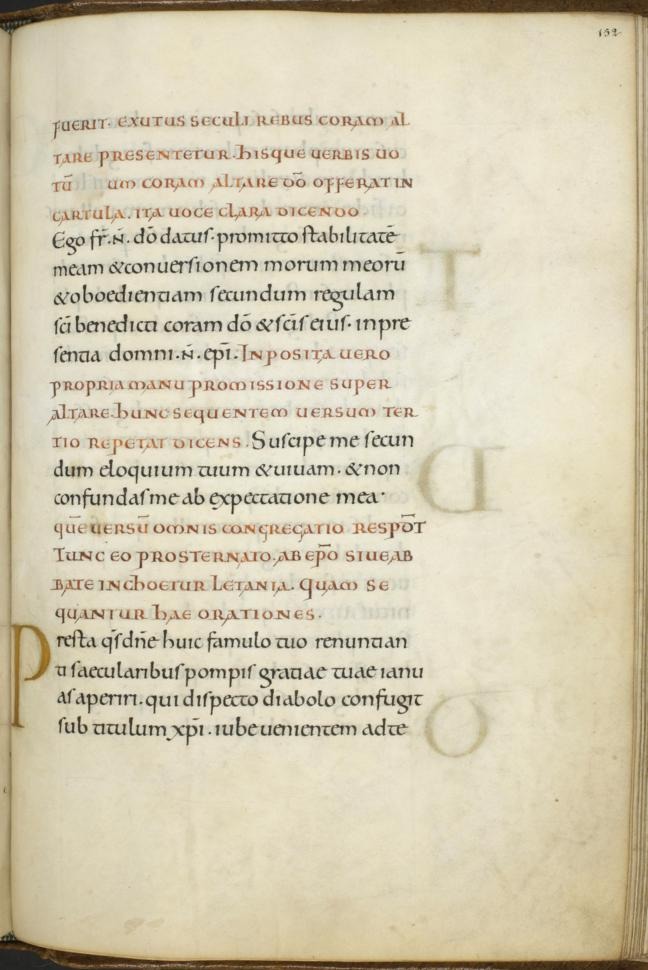 132
fuerit. exutus seculi rebus coram al
tare presentetur. hisque uerbis uo
tū um coram altare dō offerat in
cartula. ita uoce clara dicendo
Ego fr̄. n̄. dō datus. promitto stabilitatē
meam & conuersionem morum meorū
& oboedientiam secundum regulam
sc̄i benedicti coram dō & sc̄is eius. in pre
sentia domni. n̄. ep̄i. Inposita uero
propria manu promissione super
altare. hunc sequentem uersum ter
tio repetat dicens. Suscipe me secun
dum eloquium tuum & uiuam. & non
confundas me ab expectatione mea.
quē uersū omnis congregatio respōt
Tunc eo prosternato. ab ep̄o siue ab
bate inchoetur letania. Quam se
quantur hae orationes.
Presta q̄s dn̄e huic famulo tuo renuntian
ti saecularibus pompis gratiae tuae ianu
as aperiri. qui dispecto diabolo confugit
sub titulum xp̄i. iube uenientem ad te